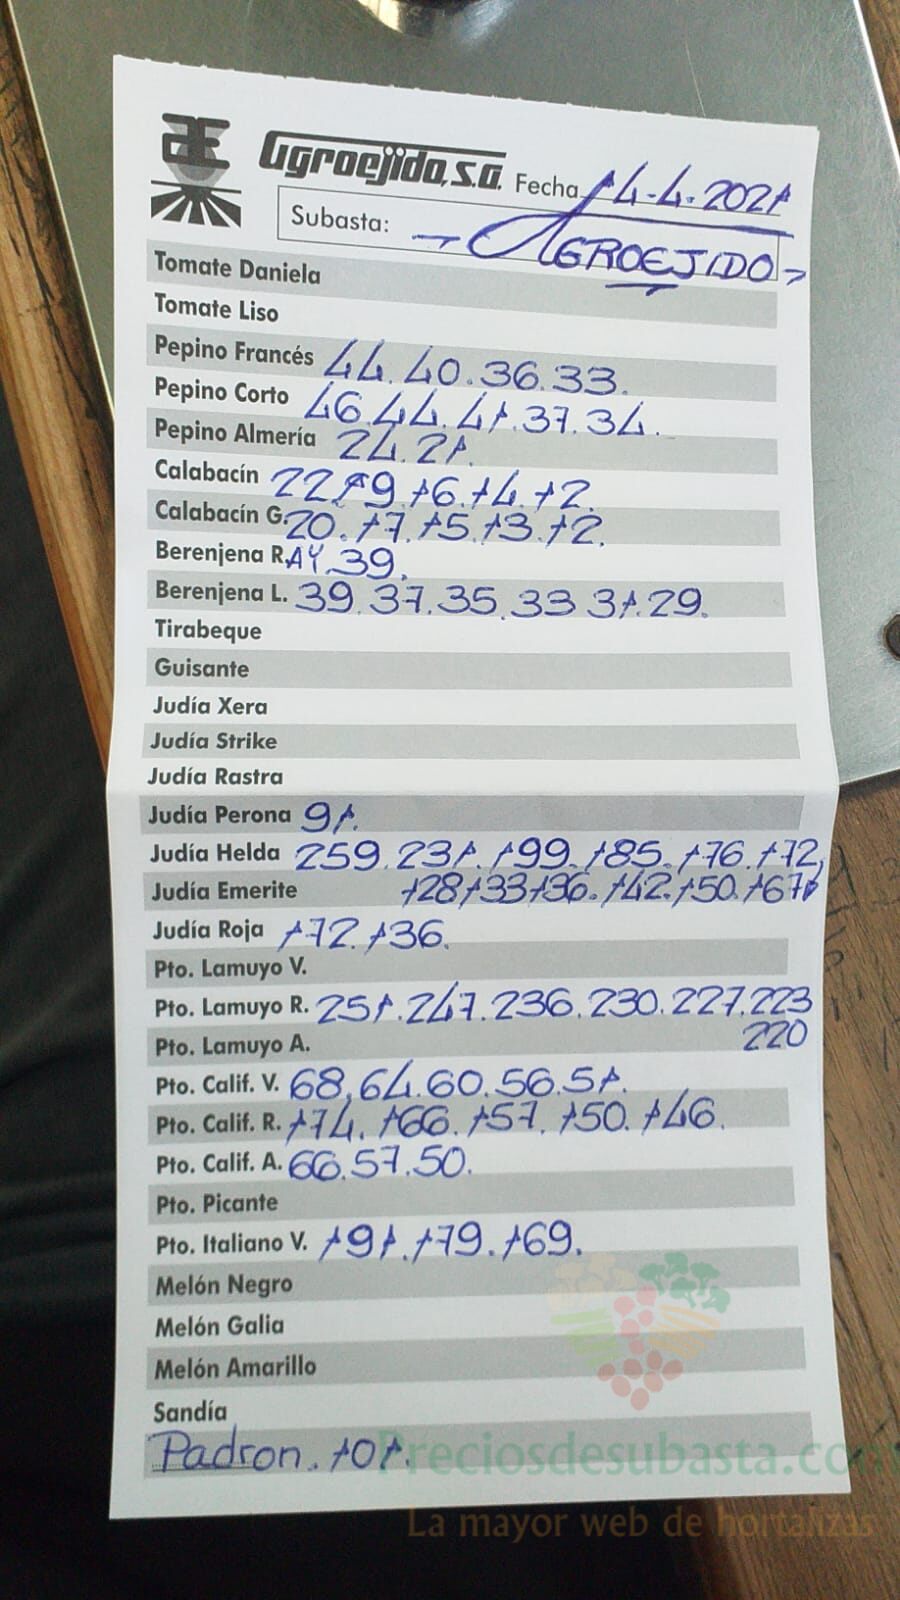 Agroejido, S.A. Fecha 14-4-2021
Subasta: AGROEJIDO
Tomate Daniela
Tomate Liso
Pepino Francés 44. 40. 36. 33.
Pepino Corto 46 44. 41. 37. 34.
Pepino Almería 24. 21.
Calabacín 22. 19. 16. 14. 12.
Calabacín G. 20. 17. 15. 13. 12.
Berenjena R. AY. 39.
Berenjena L. 39. 37. 35. 33 31. 29.
Tirabeque
Guisante
Judía Xera
Judía Strike
Judía Rastra
Judía Perona 91.
Judía Helda 259. 231. 199. 185. 176. 172,
Judía Emerite 128, 133 136. 142. 150. 167
Judía Roja 172. 136.
Pto. Lamuyo V.
Pto. Lamuyo R. 251. 247. 236. 230. 227. 223
Pto. Lamuyo A. 220
Pto. Calif. V. 68, 64. 60. 56. 51.
Pto. Calif. R. 174. 166. 157. 150. 146.
Pto. Calif. A. 66. 57. 50.
Pto. Picante
Pto. Italiano V. 191. 179. 169.
Melón Negro
Melón Galia
Melón Amarillo
Sandía
Padron. 101.
Preciosdesubasta.com
La mayor web de hortalizas